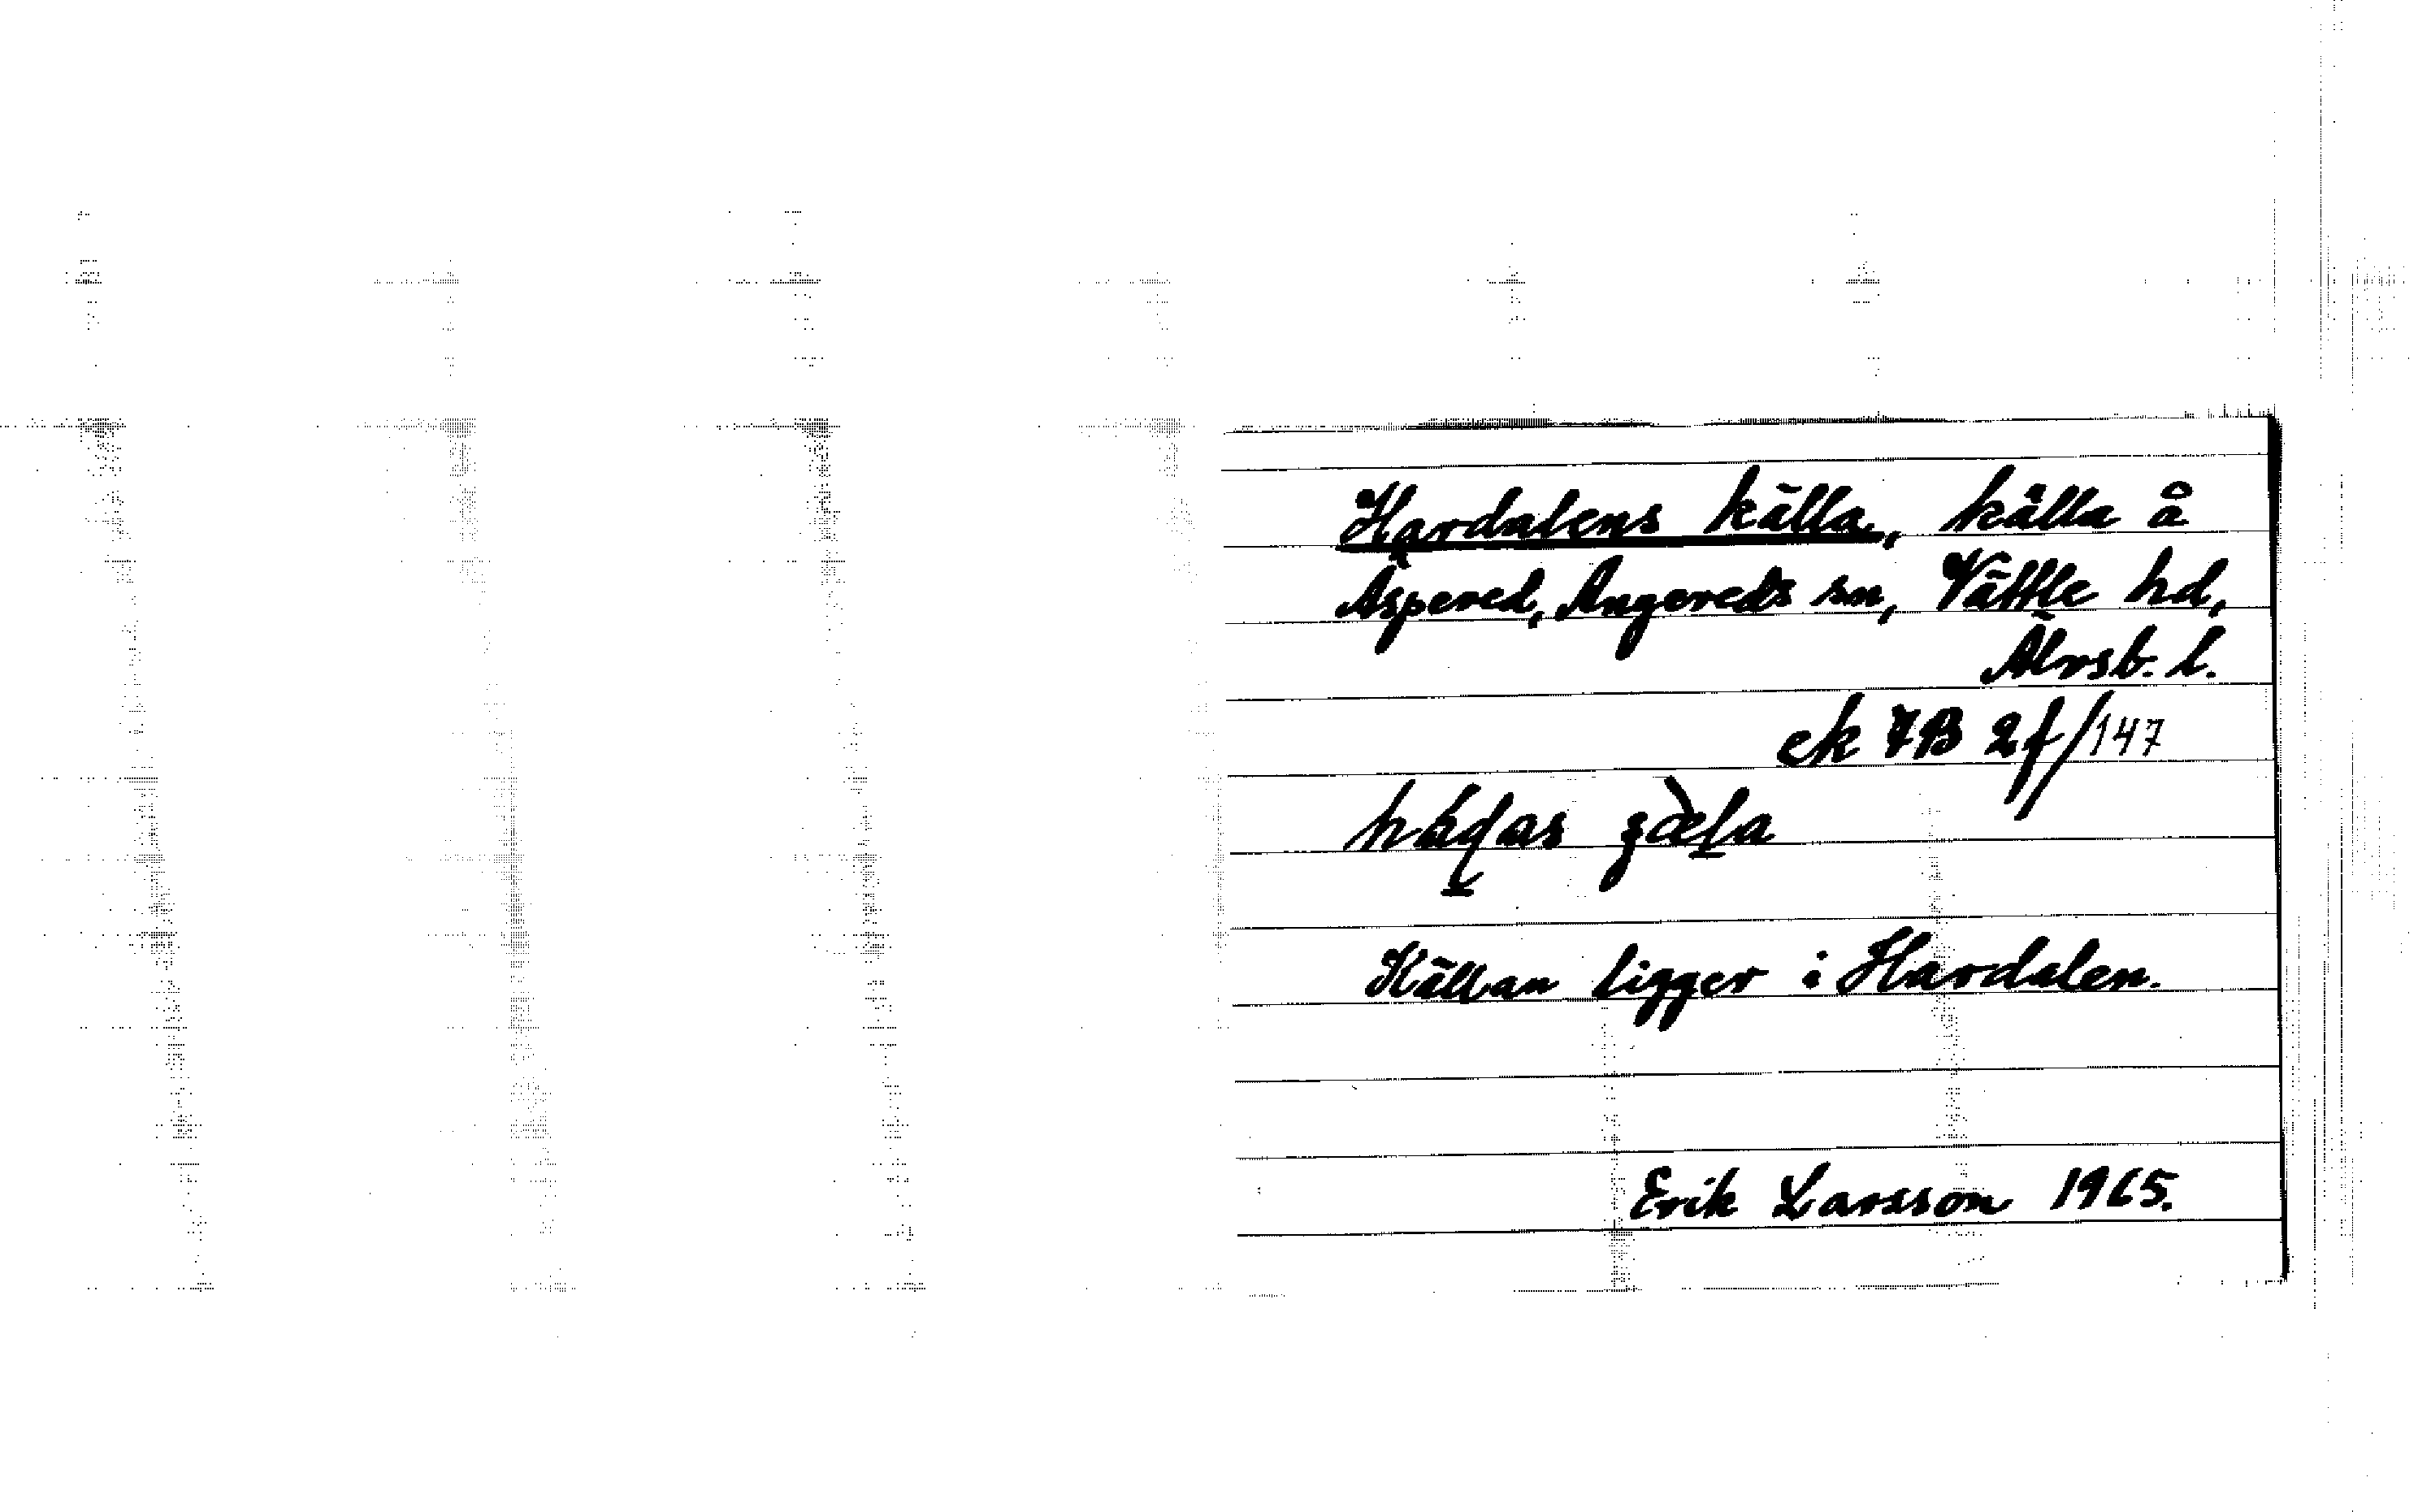 Hardalens källa, källa å
Äspered, Angereds sn, Vättle hd,
Älvsb. l.
ek 7B 2f/147
Källan ligger i Hardalen.
Erik Larsson 1965.